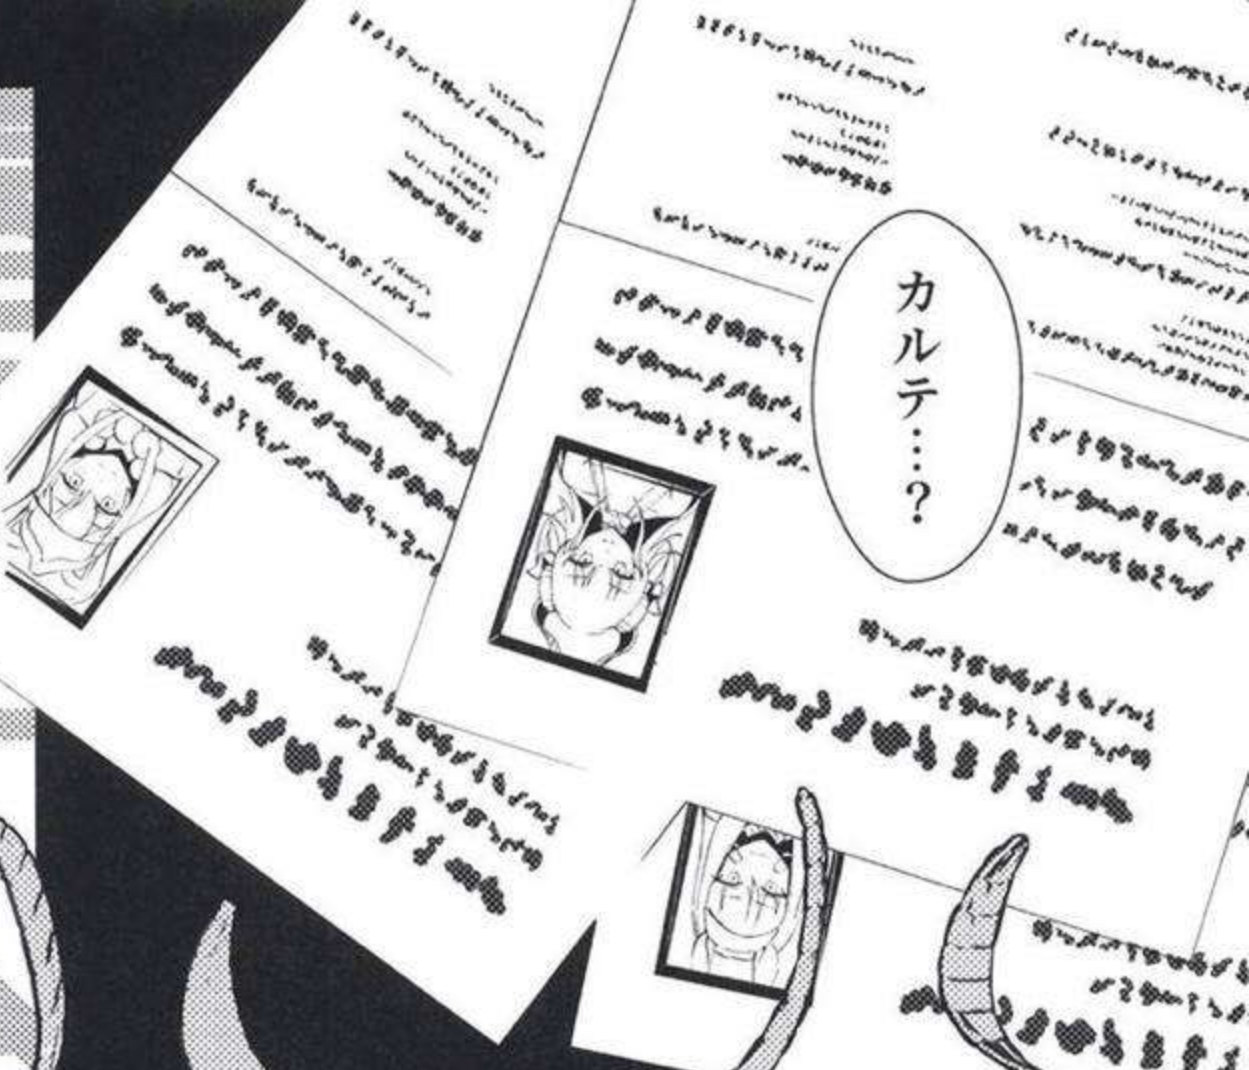 カルテ…?